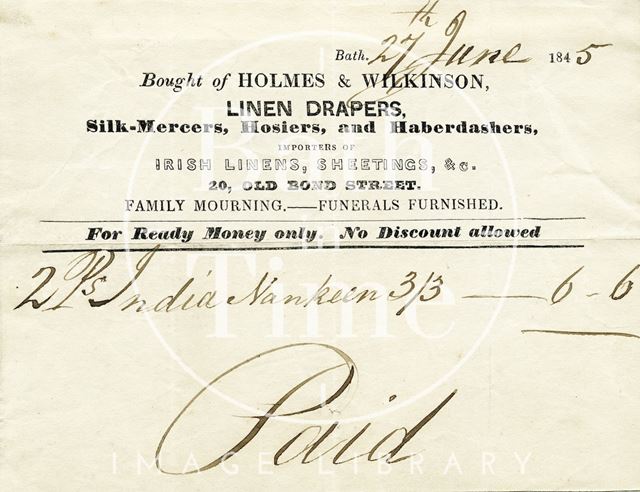 Bath. 27th June 1845
Bought of HOLMES & WILKINSON,
LINEN DRAPERS,
Silk-Mercers, Hosiers, and Haberdashers,
IMPORTERS OF
IRISH LINENS, SHEETINGS, &c.
20, OLD BOND STREET.
FAMILY MOURNING.—FUNERALS FURNISHED.
For Ready Money only. No Discount allowed
2 Ps India Nankeen 3/3 — 6 - 6
Paid
Bath in Time
IMAGE LIBRARY